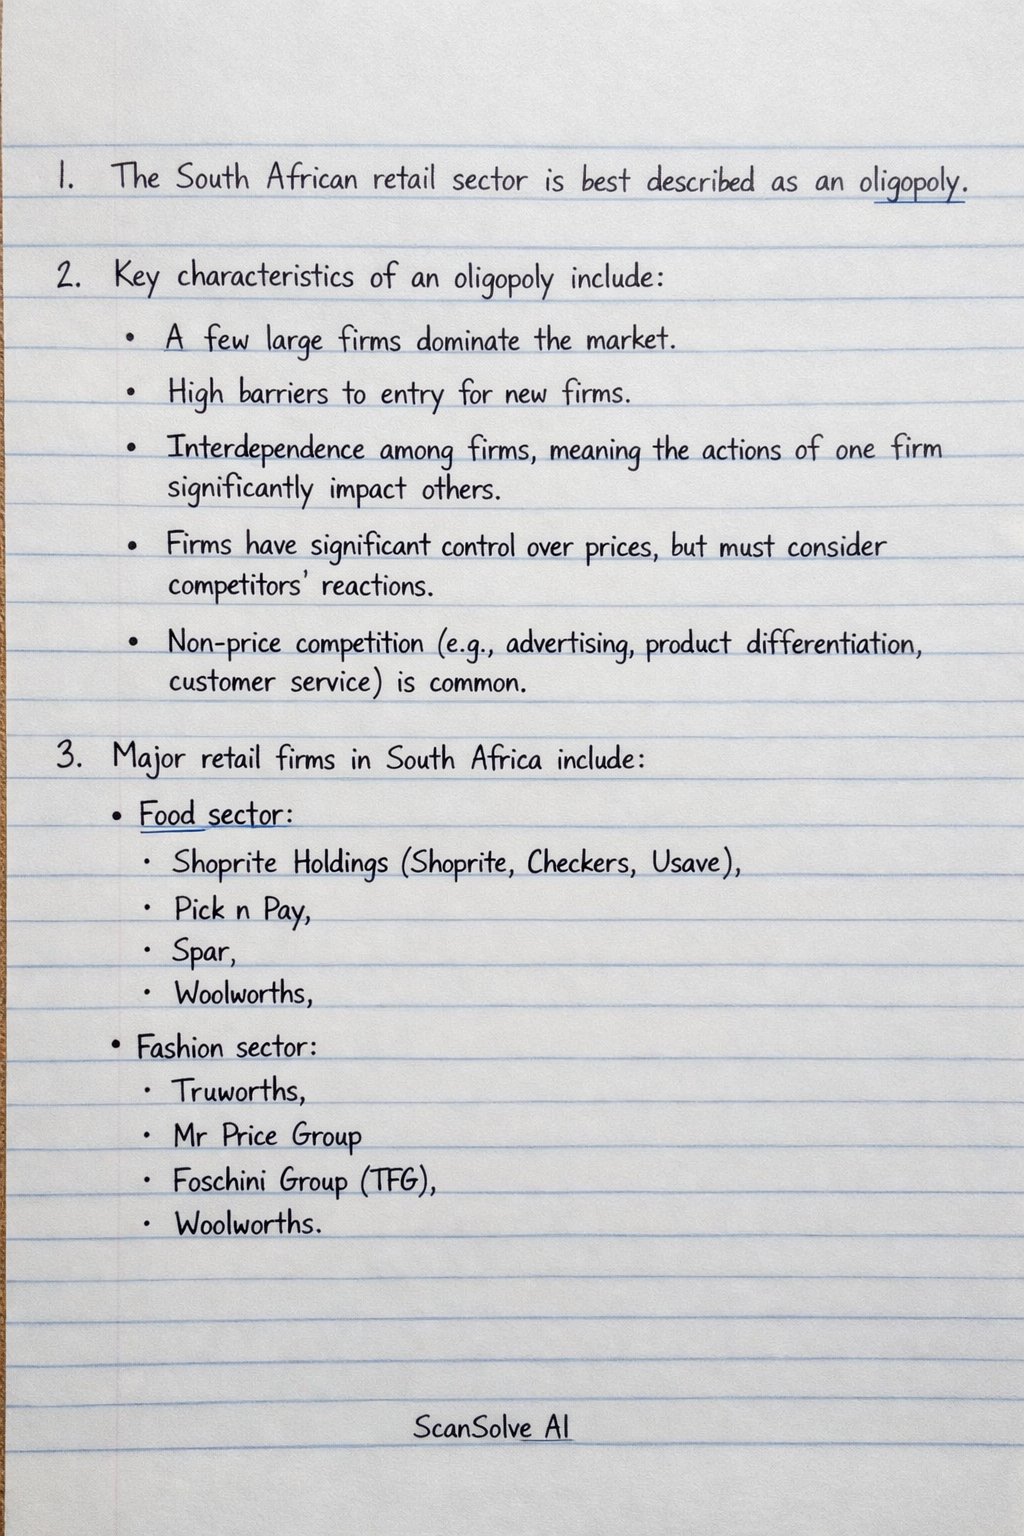 1. The South African retail sector is best described as an oligopoly.
2. Key characteristics of an oligopoly include:
• A few large firms dominate the market.
• High barriers to entry for new firms.
• Interdependence among firms, meaning the actions of one firm
significantly impact others.
• Firms have significant control over prices, but must consider
competitors' reactions.
• Non-price competition (e.g., advertising, product differentiation,
customer service) is common.
3. Major retail firms in South Africa include:
• Food sector:
• Shoprite Holdings (Shoprite, Checkers, Usave),
• Pick n Pay,
• Spar,
• Woolworths,
• Fashion sector:
• Truworths,
• Mr Price Group
• Foschini Group (TFG),
• Woolworths.
ScanSolve AI